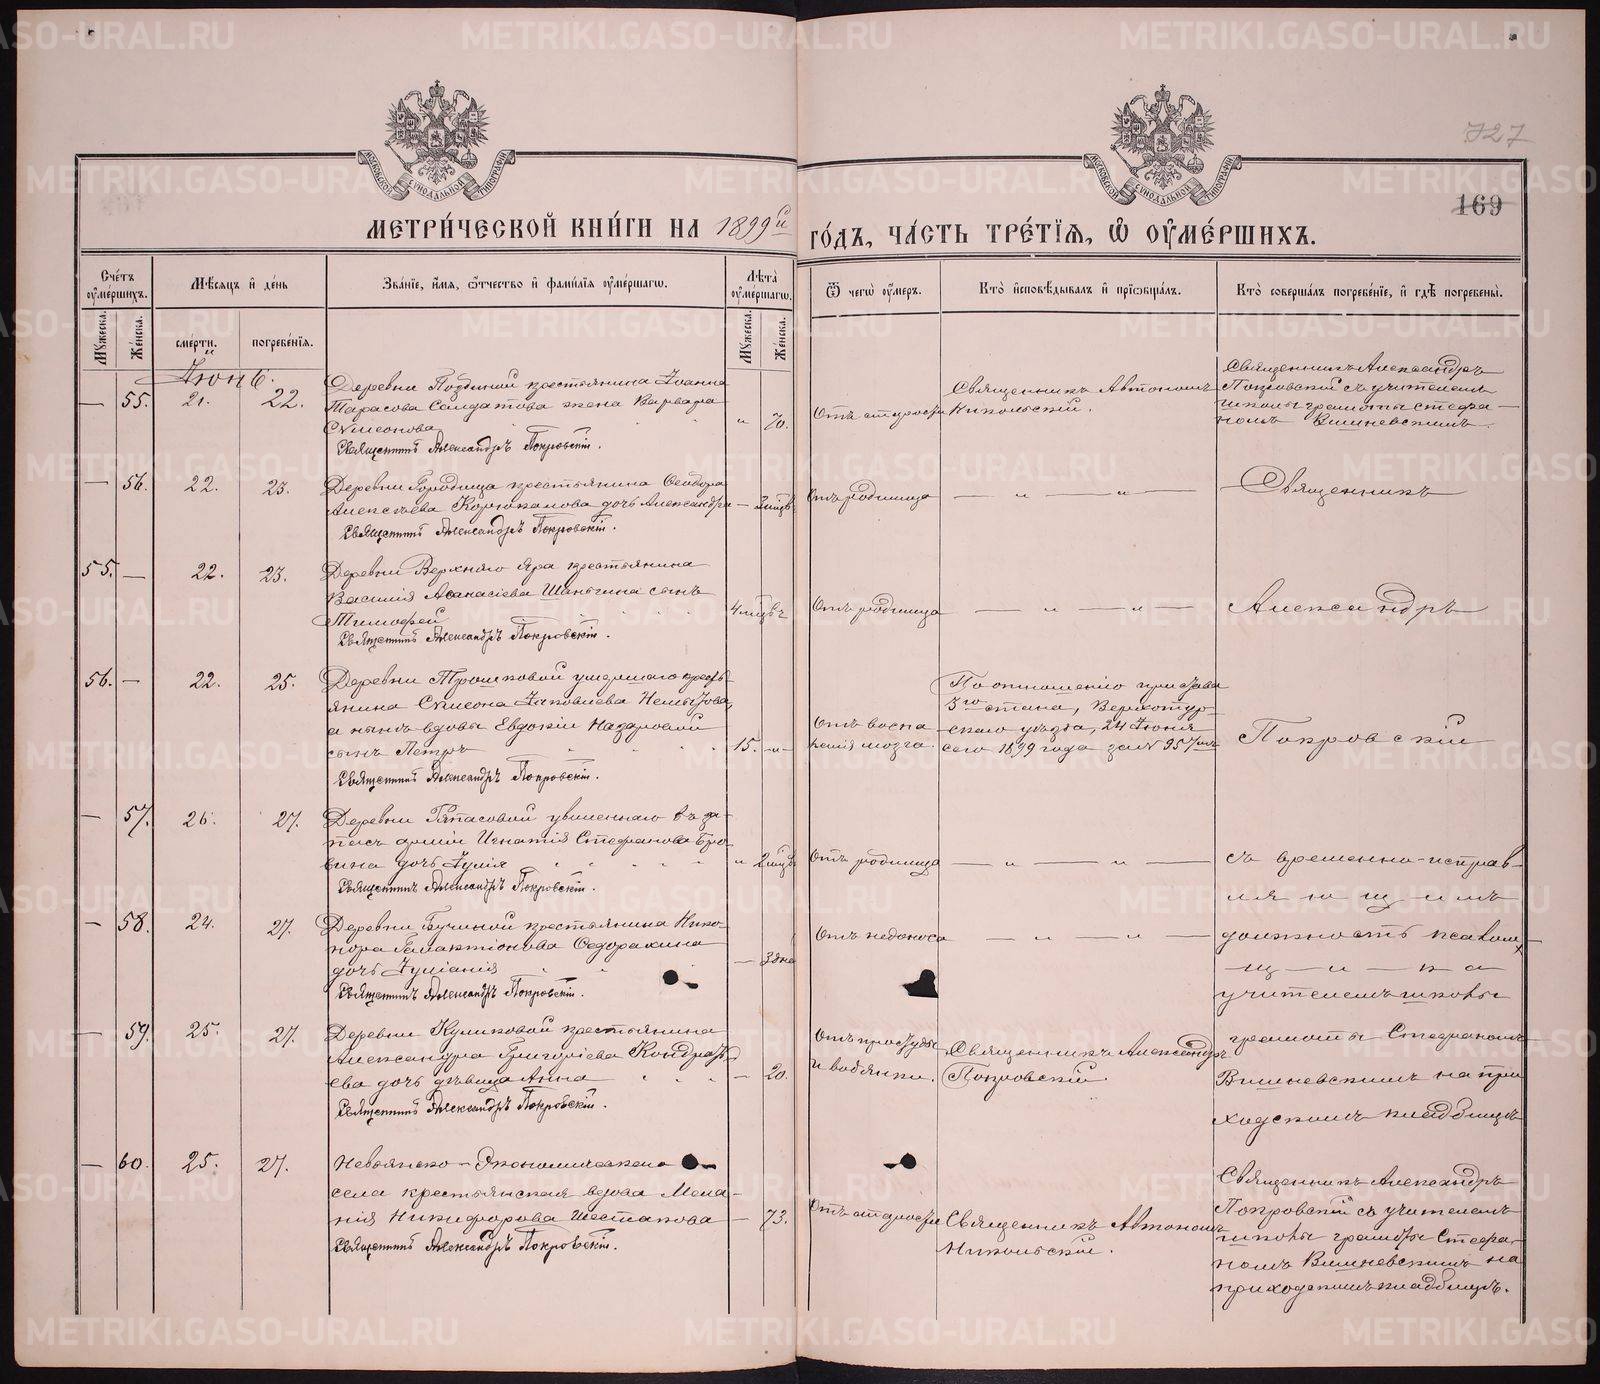 727
169
МОСКОВСКОЙ СѴНОДАЛЬНОЙ ТИПОГРАФІИ
МОСКОВСКОЙ СѴНОДАЛЬНОЙ ТИПОГРАФІИ
МЕТРИ́ЧЕСКОЙ КНИ́ГИ НА 1899й ГО́ДЪ, ЧА́СТЬ ТРЕ́ТІѦ, Ѿ ОУМЕ́РШИХЪ.
Сче́тъ оуме́ршихъ.
Мѣ́сѧцъ и҆ де́нь
Зва́нїе, и҆́мѧ, ѻ҆́тчество и҆ фами́лїѧ оуме́ршагѡ.
Лѣ́та оуме́ршагѡ.
Ѿ чегѡ̀ оу́меръ.
Кто̀ и҆сповѣ́дывалъ и҆ прїѡбща́лъ.
Кто̀ соверша́лъ погребе́нїе, и҆ гдѣ̀ погребены̀.
Му́жеска.
Же́нска.
сме́рти.
погребе́нїѧ.
Му́жеска.
Же́нска.
Іюнь.
— 55. 21. 22.
Деревни Поздиной крестьянина Іоанна
Тарасова Солдатова жена Варвара
Сѵмеонова
Священникъ Александръ Покровскій.
" 70.
Отъ старости
Священникъ Автономъ
Никольскій.
Священникъ Александръ
Покровскій съ учителемъ
школы грамоты Стефа-
номъ Вишневскимъ.
— 56. 22. 23.
Деревни Городища крестьянина Ѳеодора
Алексѣева Корюкалова дочь Александра
Священникъ Александръ Покровскій.
— 2 мцвъ
Отъ родимца
— " — " —
Священникъ
55. — 22. 23.
Деревни Верхняго Яра крестьянина
Василія Аѳанасіева Шаньгина сынъ
Тимофей
Священникъ Александръ Покровскій.
4 мцвъ "
Отъ родимца
— " — " —
Александръ
56. — 22. 25.
Деревни Трошковой умершаго кресть-
янина Сѵмеона Іаковлева Немызова,
а нынѣ вдовы Евдокіи Назаровой
сынъ Петръ
Священникъ Александръ Покровскій.
15. —"—
Отъ воспа
ленія мозга.
По отношенію пристава
3го стана, Верхотур-
скаго уѣзда, 24 Іюня
сего 1899 года за № 957мъ
Покровскій
— 57. 26. 27.
Деревни уволеннаго въ за-
пасъ арміи Игнатія Стефанова Бро-
вина дочь Іулія
Священникъ Александръ Покровскій.
" 2 мцвъ
Отъ родимца
— " — " —
съ временно-исправ-
ляющимъ
— 58. 24. 27.
Деревни Бучиной крестьянина Нико-
нора Галактіонова Седоракина
дочь Іуліанія
Священникъ Александръ Покровскій.
— 3 дня
Отъ недоноса
— " — " —
должность псалом-
щ—и—ка
учителемъ школы
— 59. 25. 27.
Деревни Куликовой крестьянина
Александра Григоріева Кондрать-
ева дочь дѣвица Анна
Священникъ Александръ Покровскій.
— 20.
Отъ простуды
и водянки.
Священникъ Александръ
Покровскій.
грамоты Стефаномъ
Вишневскимъ на при
ходскомъ кладбищѣ
— 60. 25. 27.
Невьянско-Экономическаго
села крестьянская вдова Мела-
нія Никифорова Шестакова
Священникъ Александръ Покровскій.
— 73.
Отъ старости
Священникъ Автономъ
Никольскій.
Священникъ Александръ
Покровскій съ учителемъ
школы грамоты Стефа-
номъ Вишневскимъ на
приходскомъ кладбищѣ.
METRIKI.GASO-URAL.RU